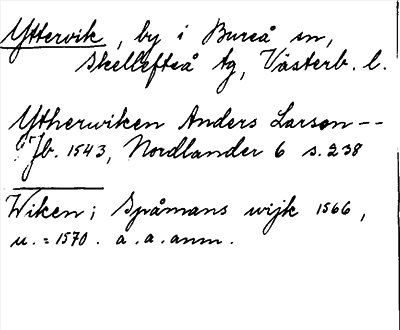 Yttervik, by i Bureå sn,
Skellefteå tg, Västerb. l.
Ytherwiken Anders Larson --
Jb. 1543, Nordlander 6 s. 238
Wiken i Spåmans wijk 1566,
u. = 1570. a. a. anm.